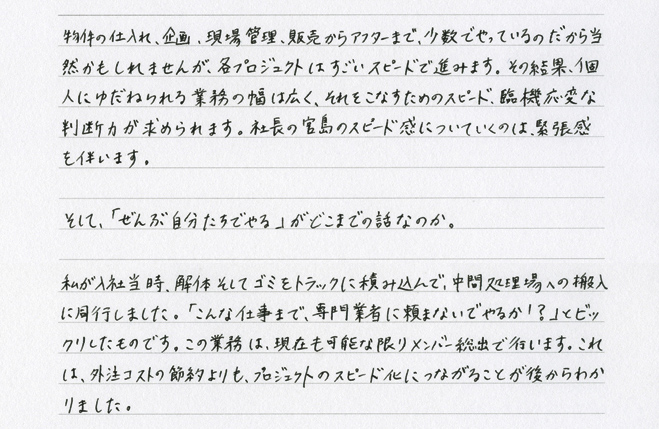 物件の仕入れ、企画、現場管理、販売からアフターまで、少数でやっているのだから当
然かもしれませんが、各プロジェクトはすごいスピードで進みます。その結果、個
人にゆだねられる業務の幅は広く、それをこなすためのスピード、臨機応変な
判断力が求められます。社長の宮島のスピード感についていくのは、緊張感
を伴います。
そして、「ぜんぶ自分たちでやる」がどこまでの話なのか。
私が入社当時、解体そしてゴミをトラックに積み込んで、中間処理場への搬入
に同行しました。「こんな仕事まで、専門業者に頼まないでやるか！？」とビッ
クリしたものです。この業務は、現在も可能な限りメンバー総出で行います。これ
は、外注コストの節約よりも、プロジェクトのスピード化につながることが後からわか
りました。